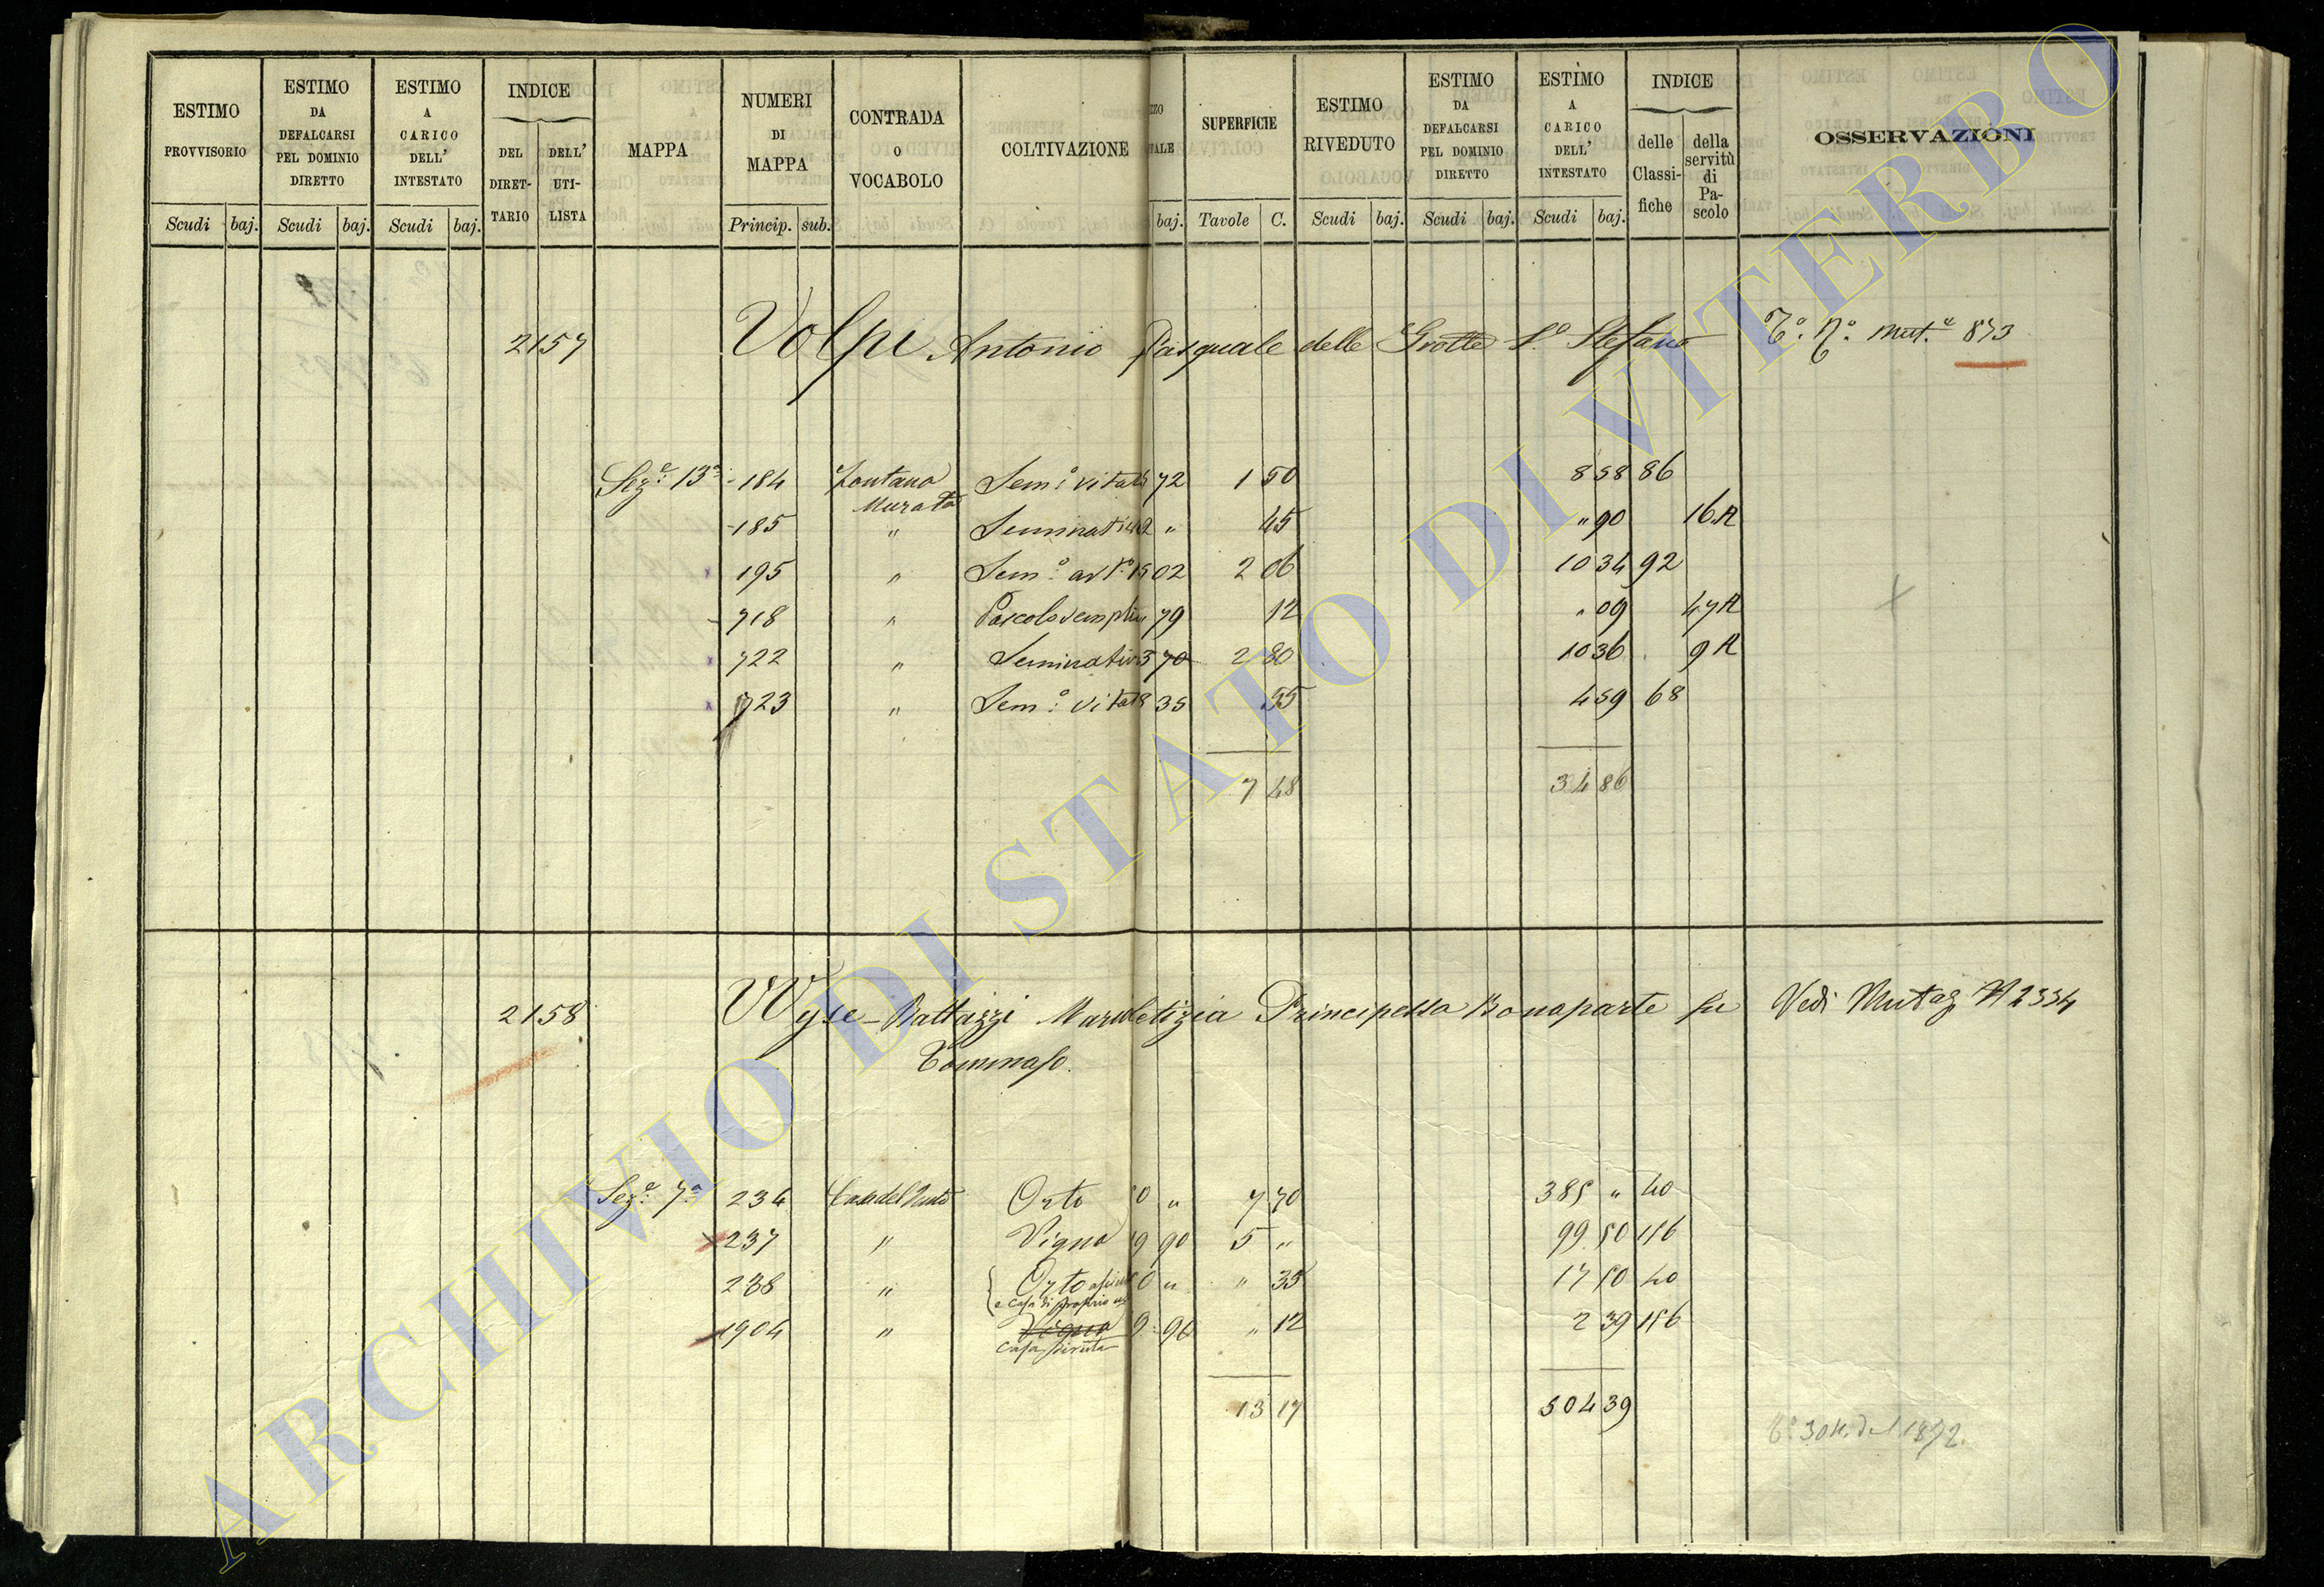 ESTIMO PROVVISORIO | ESTIMO DA DEFALCARSI PEL DOMINIO DIRETTO | ESTIMO A CARICO DELL' INTESTATO | INDICE DEL DIRET-TARIO | DELL' UTI-LISTA | MAPPA | NUMERI DI MAPPA | CONTRADA O VOCABOLO | COLTIVAZIONE | ZZO TALE | SUPERFICIE | ESTIMO RIVEDUTO | ESTIMO DA DEFALCARSI PEL DOMINIO DIRETTO | ESTIMO A CARICO DELL' INTESTATO | INDICE delle Classi-fiche | della servitù di Pa-scolo | OSSERVAZIONI
Scudi | baj. | Scudi | baj. | Scudi | baj. | Princip. | sub. | baj. | Tavole | C. | Scudi | baj. | Scudi | baj. | Scudi | baj.
2157 Volpi Antonio Pasquale delle Grotte S.o Stefano T.o N.o Mut.e 873
Sez.e 13a 184 Fontana Murata Sem.o vitato 72 1 50 8 58 86
185 " Seminativo 2 " 45 " 90 16 A
195 " Sem.o 15 02 2 06 10 34 92
718 " Pascolo semplice 79 12 " 09 47 A
722 " Seminativo 3 70 2 80 10 36 9 A
723 " Sem.o vitato 8 35 55 4 59 68
7 48 34 86
2158 Wyse-Rattazzi Marialetizia Principessa Bonaparte fu Vedi Mutaz N 2334
Tommaso.
Sez.e 7a 236 Orto 0 " 7 70 385 " 40
237 " Vigna 19 90 5 " 99 50 156
238 " Orto 0 " " 35 17 50 40
e casa di proprio
1904 " Vigna 9 90 " 12 2 39 156
casa diruta
13 17 504 39
del 1872.
ARCHIVIO DI STATO DI VITERBO